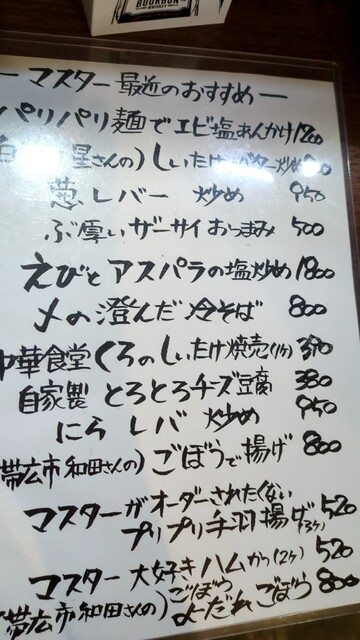 BOURBON
WHISKEY
ーマスター最近のおすすめー
パリパリ麺でエビ塩あんかけ1200
星さんの)しいたけバター炒め800
葱レバー 炒め 950
ぶ厚いザーサイおつまみ 500
えびとアスパラの塩炒め1800
〆の澄んだ冷そば 800
中華食堂くろのしいたけ焼売(1ヶ) 390
自家製 とろとろチーズ豆腐 380
にら レバ 炒め 950
(帯広市和田さんの)ごぼうで揚げ 800
マスターがオーダーされたくない
プリプリ手羽揚げ(3ヶ) 520
マスター大好きハムかつ(2ヶ) 520
(帯広市和田さんの)ごぼう
よだれごぼう 800